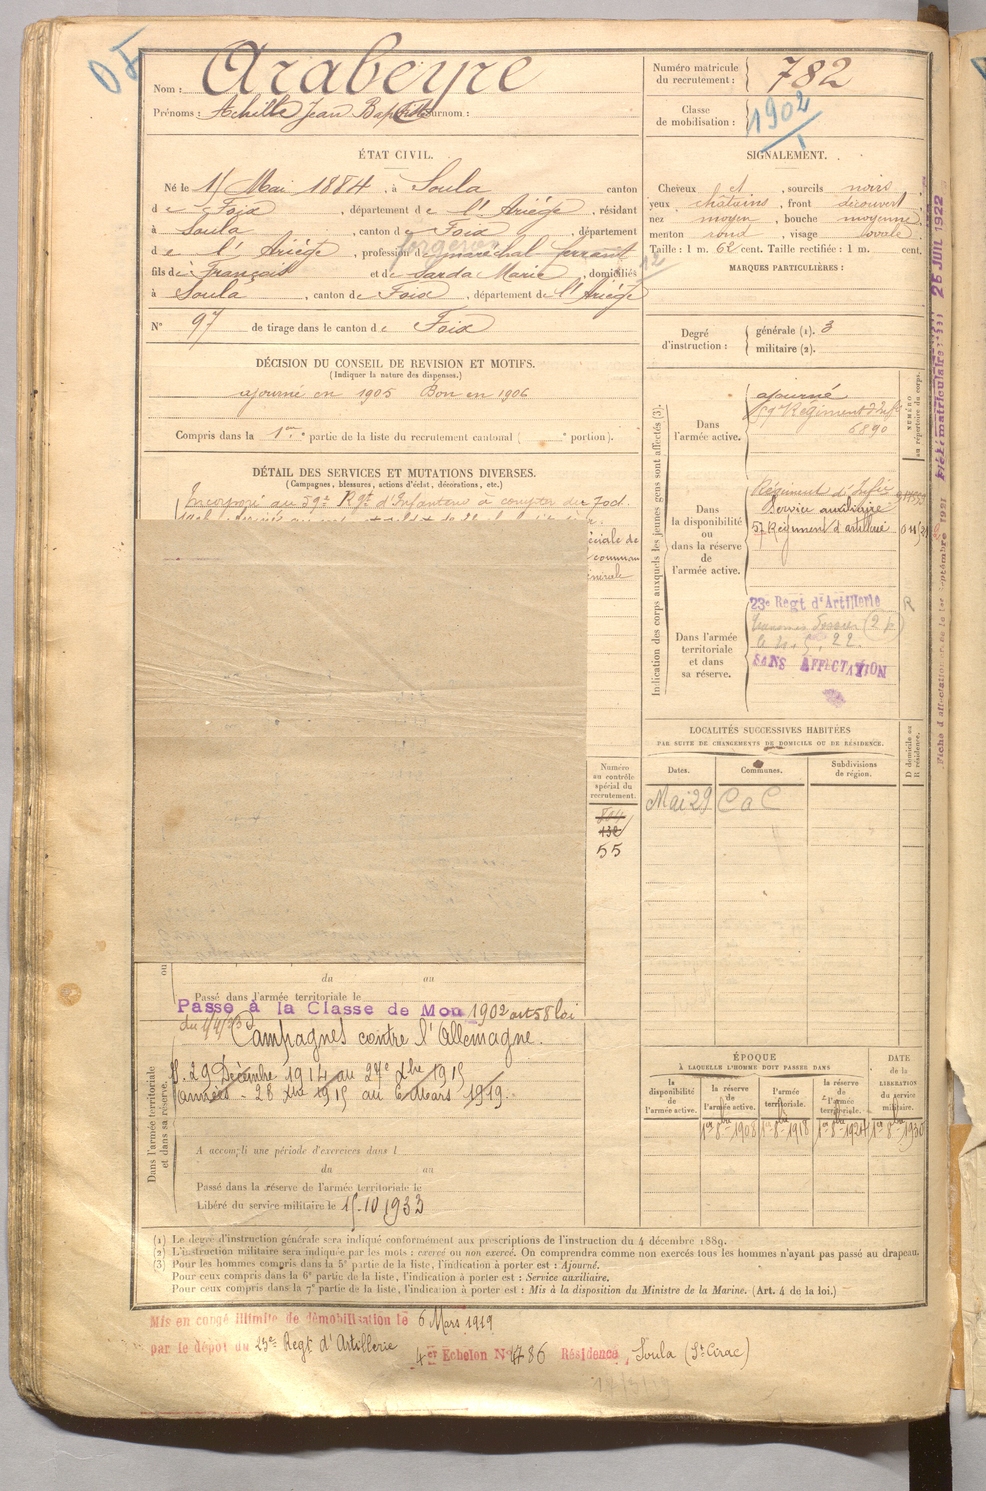 Nom : Arabeyre
Prénoms : Achille Jean Baptiste Surnom :
Numéro matricule du recrutement : 782
Classe de mobilisation : 1902
ÉTAT CIVIL.
Né le 1 Mai 1884, à Soula canton
de Foix, département de l'Ariége, résidant
à Soula, canton de Foix, département
de l'Ariége, profession de maréchal ferrant
forgeron
fils de François et de Sarda Marie, domiciliés
à Soula, canton de Foix, département de l'Ariége
N° 97 de tirage dans le canton de Foix
SIGNALEMENT.
Cheveux et, sourcils noirs
yeux châtains, front découvert
nez moyen, bouche moyenne
menton rond, visage ovale
Taille : 1 m. 62 cent. Taille rectifiée : 1 m. cent.
MARQUES PARTICULIÈRES :
Degré d'instruction : générale (1). 3
militaire (2).
DÉCISION DU CONSEIL DE REVISION ET MOTIFS.
(Indiquer la nature des dispenses.)
ajourné en 1905 Bon en 1906
Compris dans la 1re partie de la liste du recrutement cantonal ( e portion).
DÉTAIL DES SERVICES ET MUTATIONS DIVERSES.
(Campagnes, blessures, actions d'éclat, décorations, etc.)
Incorporé au 59e Rgt d'Infanterie à compter du 7 oct.
éciale de
commun
énérale
Indication des corps auxquels les jeunes gens sont affectés (3).
NUMÉRO au répertoire du corps.
Dans l'armée active.
ajourné
59 Régiment d'Infie
6890
Dans la disponibilité ou dans la réserve de l'armée active.
Régiment d'Infie
Service auxiliaire
57 Régiment d'artillerie
Dans l'armée territoriale et dans sa réserve.
23e Regt d'Artillerie
R
SANS AFFECTATION
LOCALITÉS SUCCESSIVES HABITÉES
PAR SUITE DE CHANGEMENTS DE DOMICILE OU DE RÉSIDENCE.
D domicile ou R résidence.
Dates. Communes. Subdivisions de région.
Mai 29 CaC
Numéro au contrôle spécial du recrutement.
132
55
du au
Passé dans l'armée territoriale le
Passé à la Classe de Mob 1902 art 58 loi
du 1/4/23
Dans l'armée territoriale et dans sa réserve.
Campagnes contre l'Allemagne.
29 Décembre 1914 au 27 Xbre 1915
armées - 28 Xbre 1915 au 6 Mars 1919.
A accompli une période d'exercices dans l
du au
Passé dans la réserve de l'armée territoriale le
Libéré du service militaire le 15.10.1933
ÉPOQUE
À LAQUELLE L'HOMME DOIT PASSER DANS
DATE de la LIBÉRATION du service militaire.
la disponibilité de l'armée active. la réserve de l'armée active. l'armée territoriale. la réserve de l'armée territoriale.
1er 8bre 1908 1er 8bre 1918 1er 8bre 1924 1er 8bre 1930
(1) Le degré d'instruction générale sera indiqué conformément aux prescriptions de l'instruction du 4 décembre 1889.
(2) L'instruction militaire sera indiquée par les mots : exercé ou non exercé. On comprendra comme non exercés tous les hommes n'ayant pas passé au drapeau.
(3) Pour les hommes compris dans la 5e partie de la liste, l'indication à porter est : Ajourné.
Pour ceux compris dans la 6e partie de la liste, l'indication à porter est : Service auxiliaire.
Pour ceux compris dans la 7e partie de la liste, l'indication à porter est : Mis à la disposition du Ministre de la Marine. (Art. 4 de la loi.)
Mis en congé illimité de démobilisation le 6 Mars 1919
par le dépôt du 23e Regt d'Artillerie
Echelon N° 86 Résidence Soula (St Cirac)
25 JUIL 1922